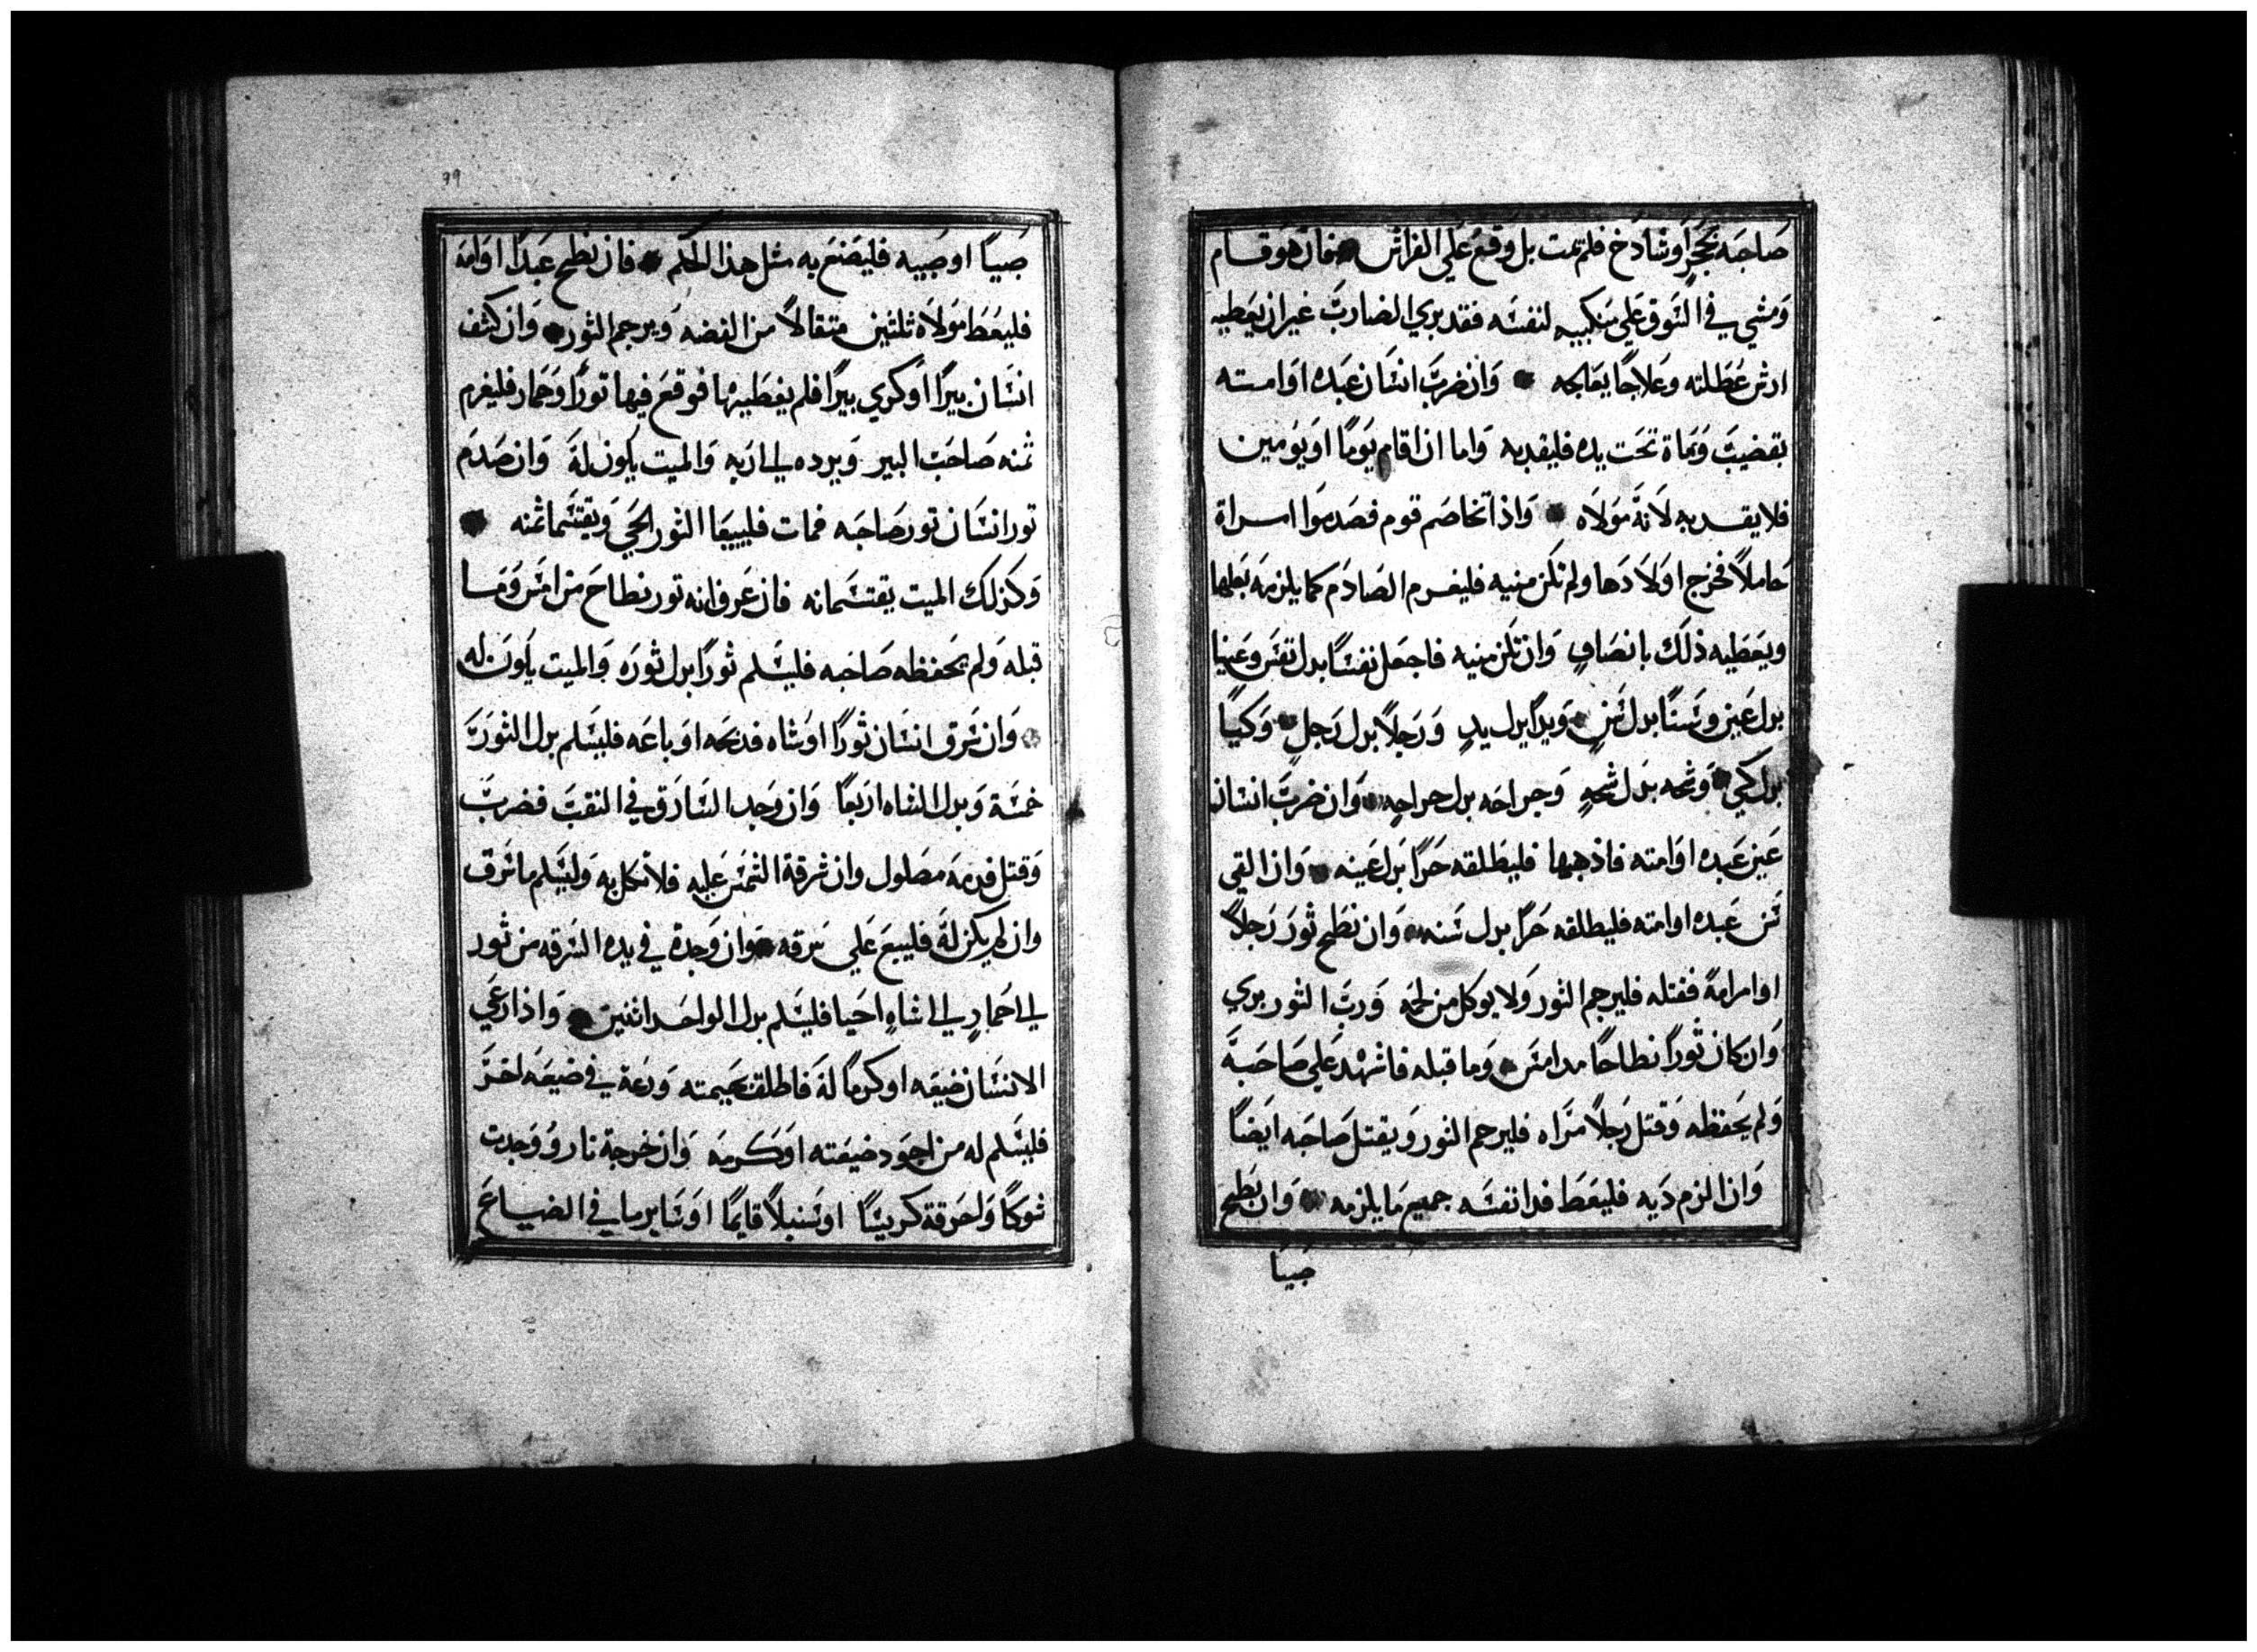 صَاحَبَه بَحَجَرٍ اوشادَخ فلم يمت بل وقعَ عَلَي الفراش فان هوَ قام
وَمشي في السَوق عَلي منكبيه لنفسَه فقد بري الضاربَ غير ان يعَطيه
ارش عُطَلته وعَلاجا يعَالجه وَان ضربَ انسَان عَبده اوَامته
بقضيبَ وَماة تَحت يده فليقد به وَاما ان اقام يَومًا اوَ يوَمين
فلا يقد به لاَنهَ مَولاَه وَاذا تخاصَم قوم فصَدموَا امراة
حَاملاً فخرج اوَلاَدَها ولم تكن منيه فليغرم الصَادَم كما يلزمه بَعلها
ويعَطيه ذلَك بانصَافٍ وَان تَكن منيه فاجعَل نفسًا بدل نفسَ وعَينا
بدل عَين وسَنًا بدل سَنٍ وَيدًا بدل يدٍ وَرَجلاً بدل رَجلٍ وَكيًا
بدل كيٍ وَشجه بَدل شجهٍ وَجراحَه بدل جراحهٍ وَان ضربَ انسان
عَين عَبده اوَامته فاذهبها فليطَلقه حَرًا بَدل عَينه وَان القي
سَن عَبده اوامته فليطلقه حَرًا بدل سَنه وَان نطَح ثوَر رَجلاً
اوامراهً فقتله فليرجم الثور وَلا يوكل من لحمَه وَربَ الثور بري
وَان كان ثورًا نطاحًا مد امسَ وَما قبله فاشهد عَلي صَاحَبهَ
وَلم يَحفظه وَقتل رَجلاً مَراه فليرجم الثور وَيقتل صَاحَبه ايضًا
وَان الزم دَيه فليعَط فدا نفسَه جميع مَا يلزمه وَان نطح
صَبيًا
99
صَبيًا اوصَبيه فليصَنعَ به مثل هذا الحَكم فان نطح عَبدًا اوَامَه
فليعَط موَلاَه ثلثين متقالاً من الفضه وَيرجم الثور وَان كشف
انسَان بيرًا اوَكري بيرًا فلم يغطَيها فوقعَ فيها تورًا وَحَمار فليغرم
ثمنه صَاحَب البير وَيرده لي ارَبه وَالميت يكون لهَ وَان صَدَم
تور انسَان تور صَاحَبه فمات فليبيعَا الثور الحَي وَيقتسَما ثمنه
وَكذلك الميت يقتسَمانه فان عَرف انه تور نطاحَ من امسَ وَمَا
قبله وَلم يَحفظه صَاحَبه فليسَلم ثورًا بدل ثورَه وَالميت يكَون له
وَان سَرق انسَان ثورًا اوَشاه فدبحَه اوَ باعَه فليسَلم بدل الثوَرَ
خمسَة وَبدل الشاه اربَعًا وَان وَجد السَارَق في النقبَ فضربَ
وَقتل فدمهَ مصَلول وان شرقة الشمسَ عَليه فلا نكل به وَليسَلم ماسَرق
وان لم يكن لهَ فليبيعَ عَلي سَرقه وَان وَجدة في يده السَرقه من ثور
لي احَمارٍ لي اشاهٍ احَيا فليسَلم بدل الواحَد اثنين وَاذا رعَي
الانسَان ضيعَه اوكرمًا لهَ فاطلق بهَيمته وَرعَة في ضيعَه اخرَ
فليسَلم له من اجوَد ضيعَته اوَكَرمَه وَان خرجة ناروُ وَجدت
شوكًا وَاحَرقة كريسًا اوسَنبلاً قايمًا اوَسَاير ما في الضياعَ